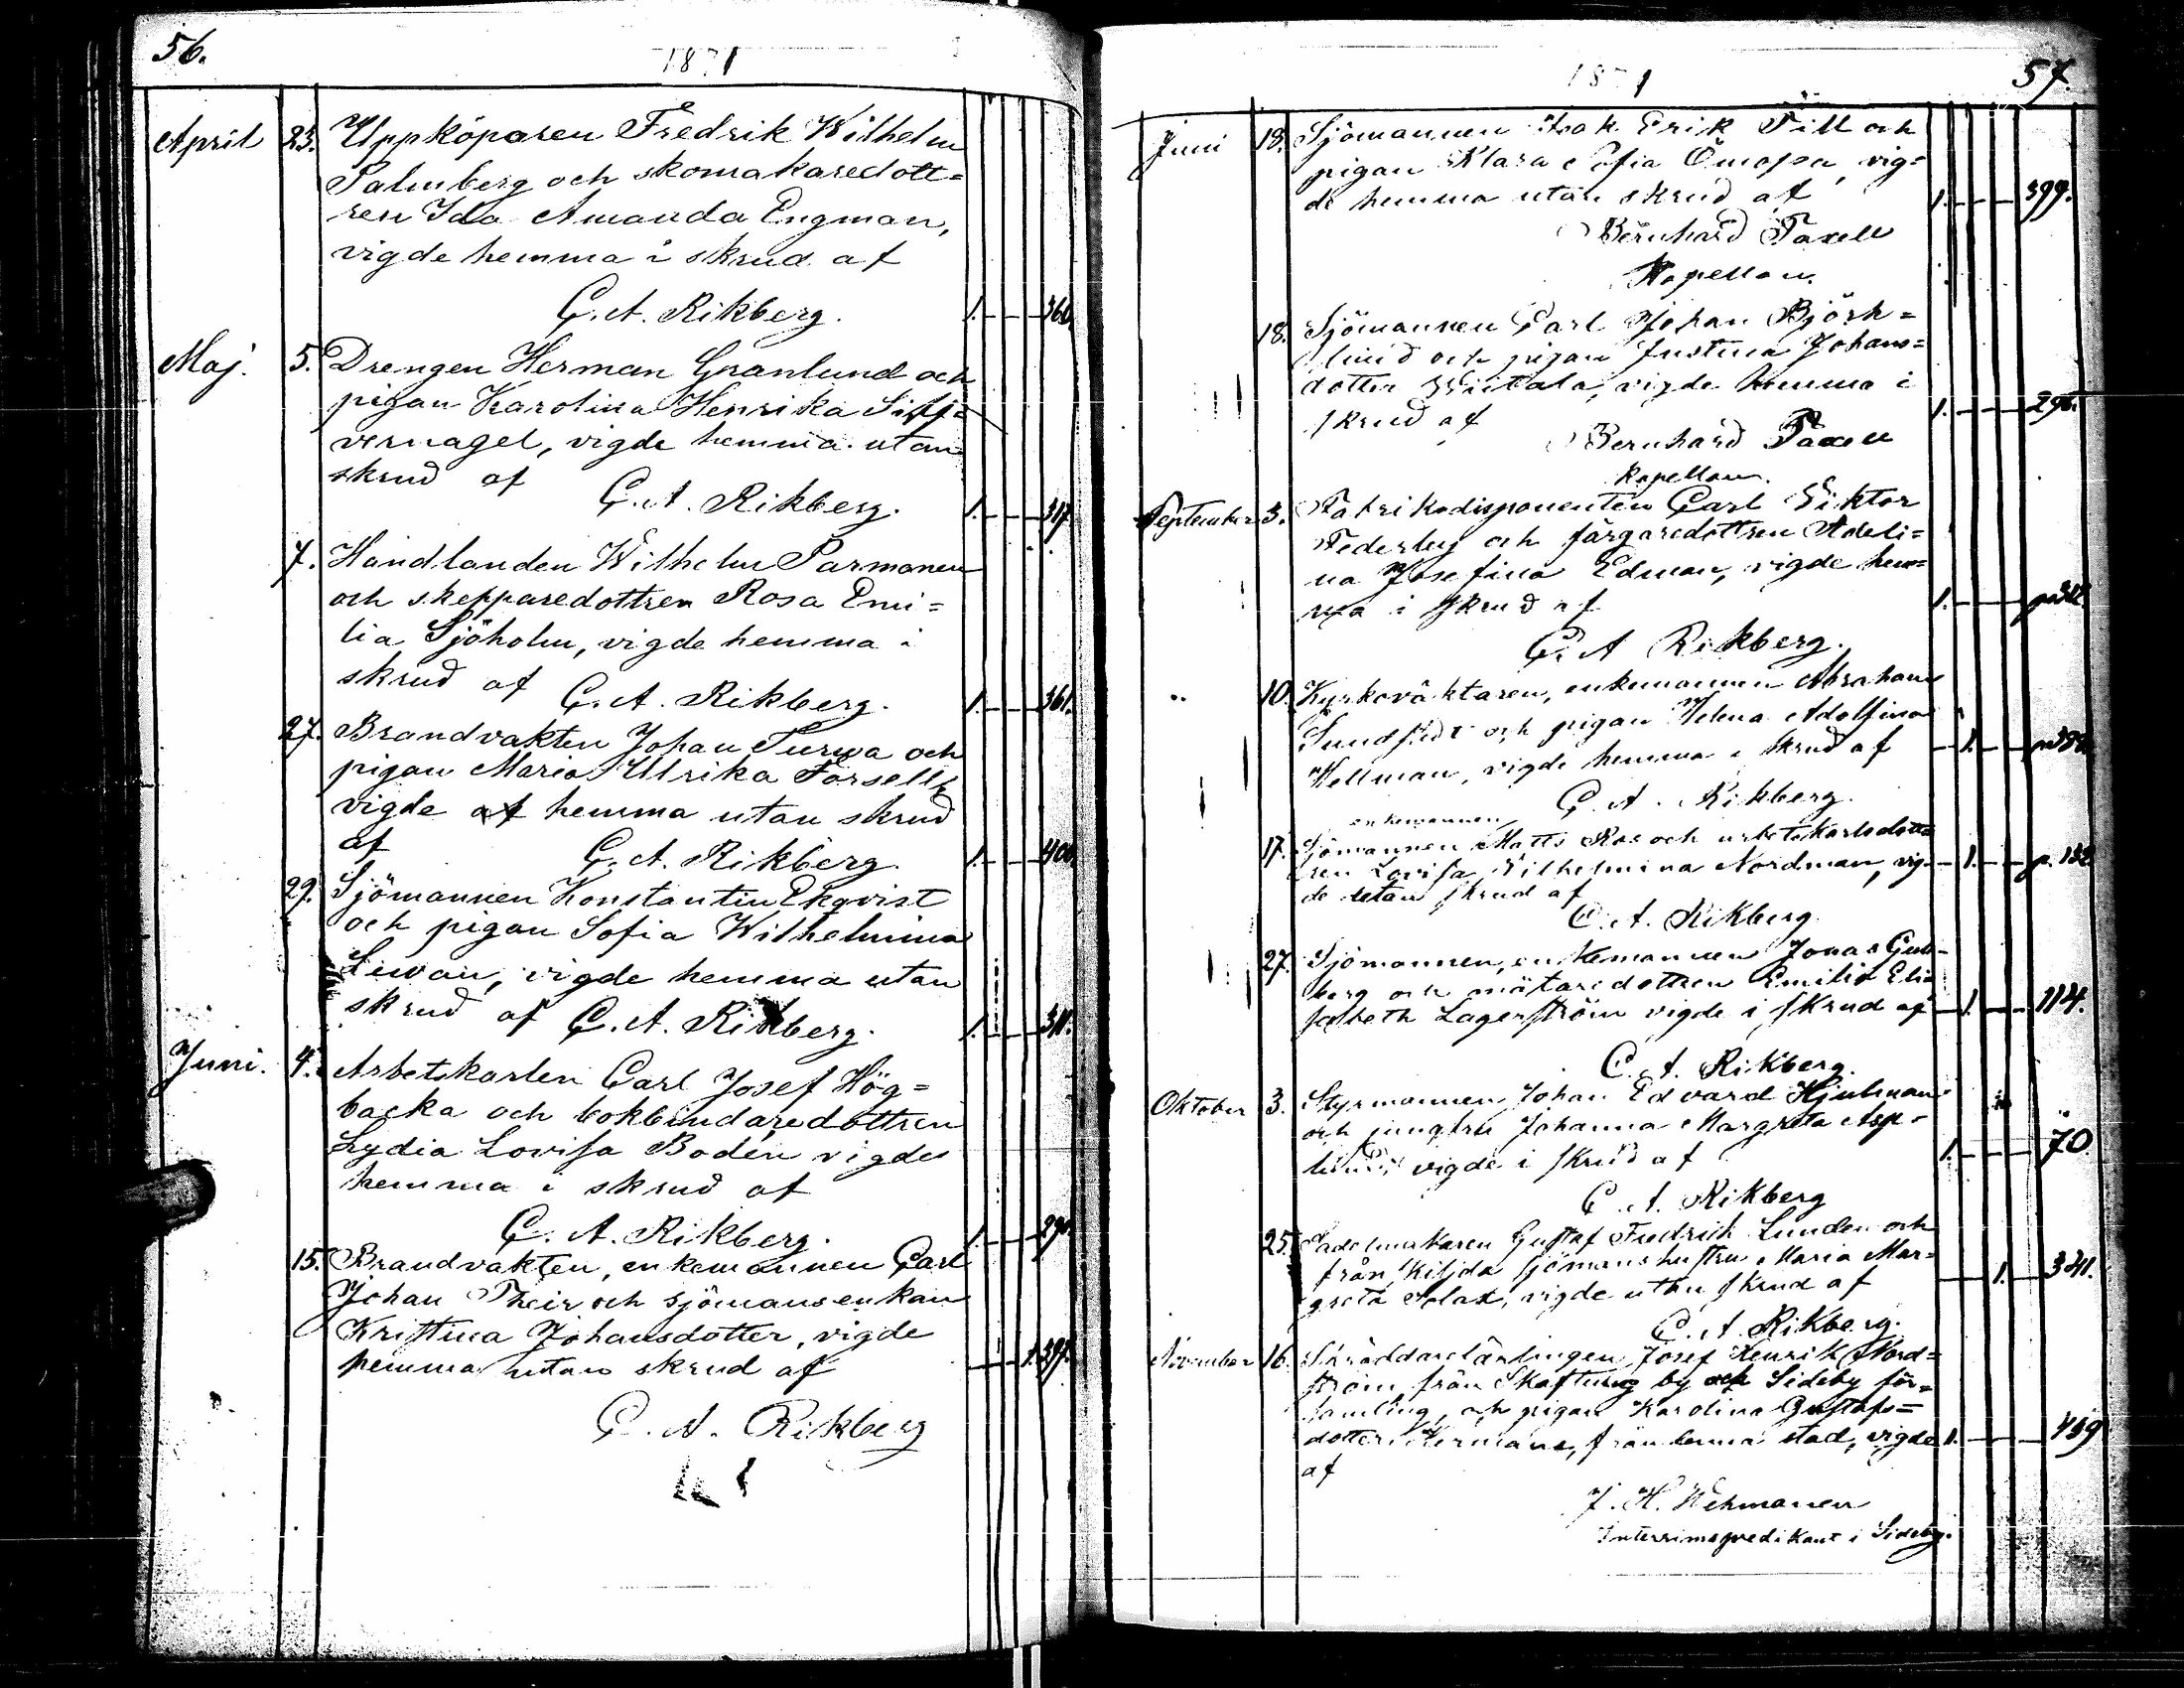 56.
1871
April 23. Uppköparen Fredrik Wilhelm
Palmberg och skomakaredott=
ren Ida Amanda Engman,
vigde hemma i skrud af
C. A. Rikberg. 1. 360.
Maj. 5. Drengen Herman Granlund och
pigan Karolina Henrika Silf=
vernagel, vigde hemma utan
skrud af
C. A. Rikberg. 1. 317
7. Handlanden Wilhelm Parmanen
och skepparedottren Rosa Emi=
lia Sjöholm, vigde hemma i
skrud af C. A. Rikberg. 1. 361.
27. Brandvakten Johan Turwa och
pigan Maria Ulrika Forsell,
vigde af hemma utan skrud
af C. A. Rikberg. 1. 400
29. Sjömannen Konstantin Ekqvist
och pigan Sofia Wilhelmina
Siwan, vigde hemma utan
skrud af C. A. Rikberg. 1. 311.
Juni. 4. Arbetskarlen Carl Josef Hög=
backa och bokbindaredottren
Lydia Lovisa Boden vigde
hemma i skrud af
C. A. Rikberg. 1. 290.
15. Brandvakten, enkemannen Carl
Johan Their och sjömansenkan
Kristina Johansdotter, vigde
hemma utan skrud af 1. 397.
C. A. Rikberg
57.
1871
Juni 18. Sjömannen Isak Erik Till och
pigan Klara Sofia Ömossa, vig=
de hemma utan skrud af 1. 399.
Bernhard Taxell
Kapellan.
18. Sjömannen Carl Johan Björk=
lund och pigan Justina Johans=
dotter Wiitala, vigde hemma i
skrud af 1. 296.
Bernhard Taxell
Kapellan.
September 3. Fabriksdisponenten Carl Viktor
Federley och färgaredottren Adeli=
na Josefina Edman, vigde hem=
ma i skrud af 1.
C. A. Rikberg.
10. Kyrkoväktaren, enkemannen Abraham
Sundstedt och pigan Helena Adolfina
Wellman, vigde hemma i skrud af 1.
C. A. Rikberg.
enkemannen
17. Sjömannen Matts Ros och arbetskarlsdott=
ren Lovisa Wilhelmina Nordman, vig= 1. p. 132
de utan skrud af
C. A. Rikberg.
27. Sjömannen, enkemannen Jonas
berg och mätaredottren Emilia Eli=
sabeth Lagerström vigde i skrud af 1. 114.
C. A. Rikberg.
Oktober 3. Styrmannen Johan Edvard Hjulman
och jungfru Johanna Margreta Asp=
lund vigde i skrud af 1. 70.
C. A. Rikberg
25. Sadelmakaren Gustaf Fredrik Lunden och
från sjömanshustru Maria Mar=
greta Solax, vigde utan skrud af 1. 341.
C. A. Rikberg.
November 16. Skräddarelärlingen Josef Henrik Nord=
ström från Skaftung by och Sideby för=
samling, och pigan Karolina Gustafs=
dotter Hermans, från denna stad, vigde 1. 459
af
J. H. Wehmanen
Interimspredikant i Sideby.